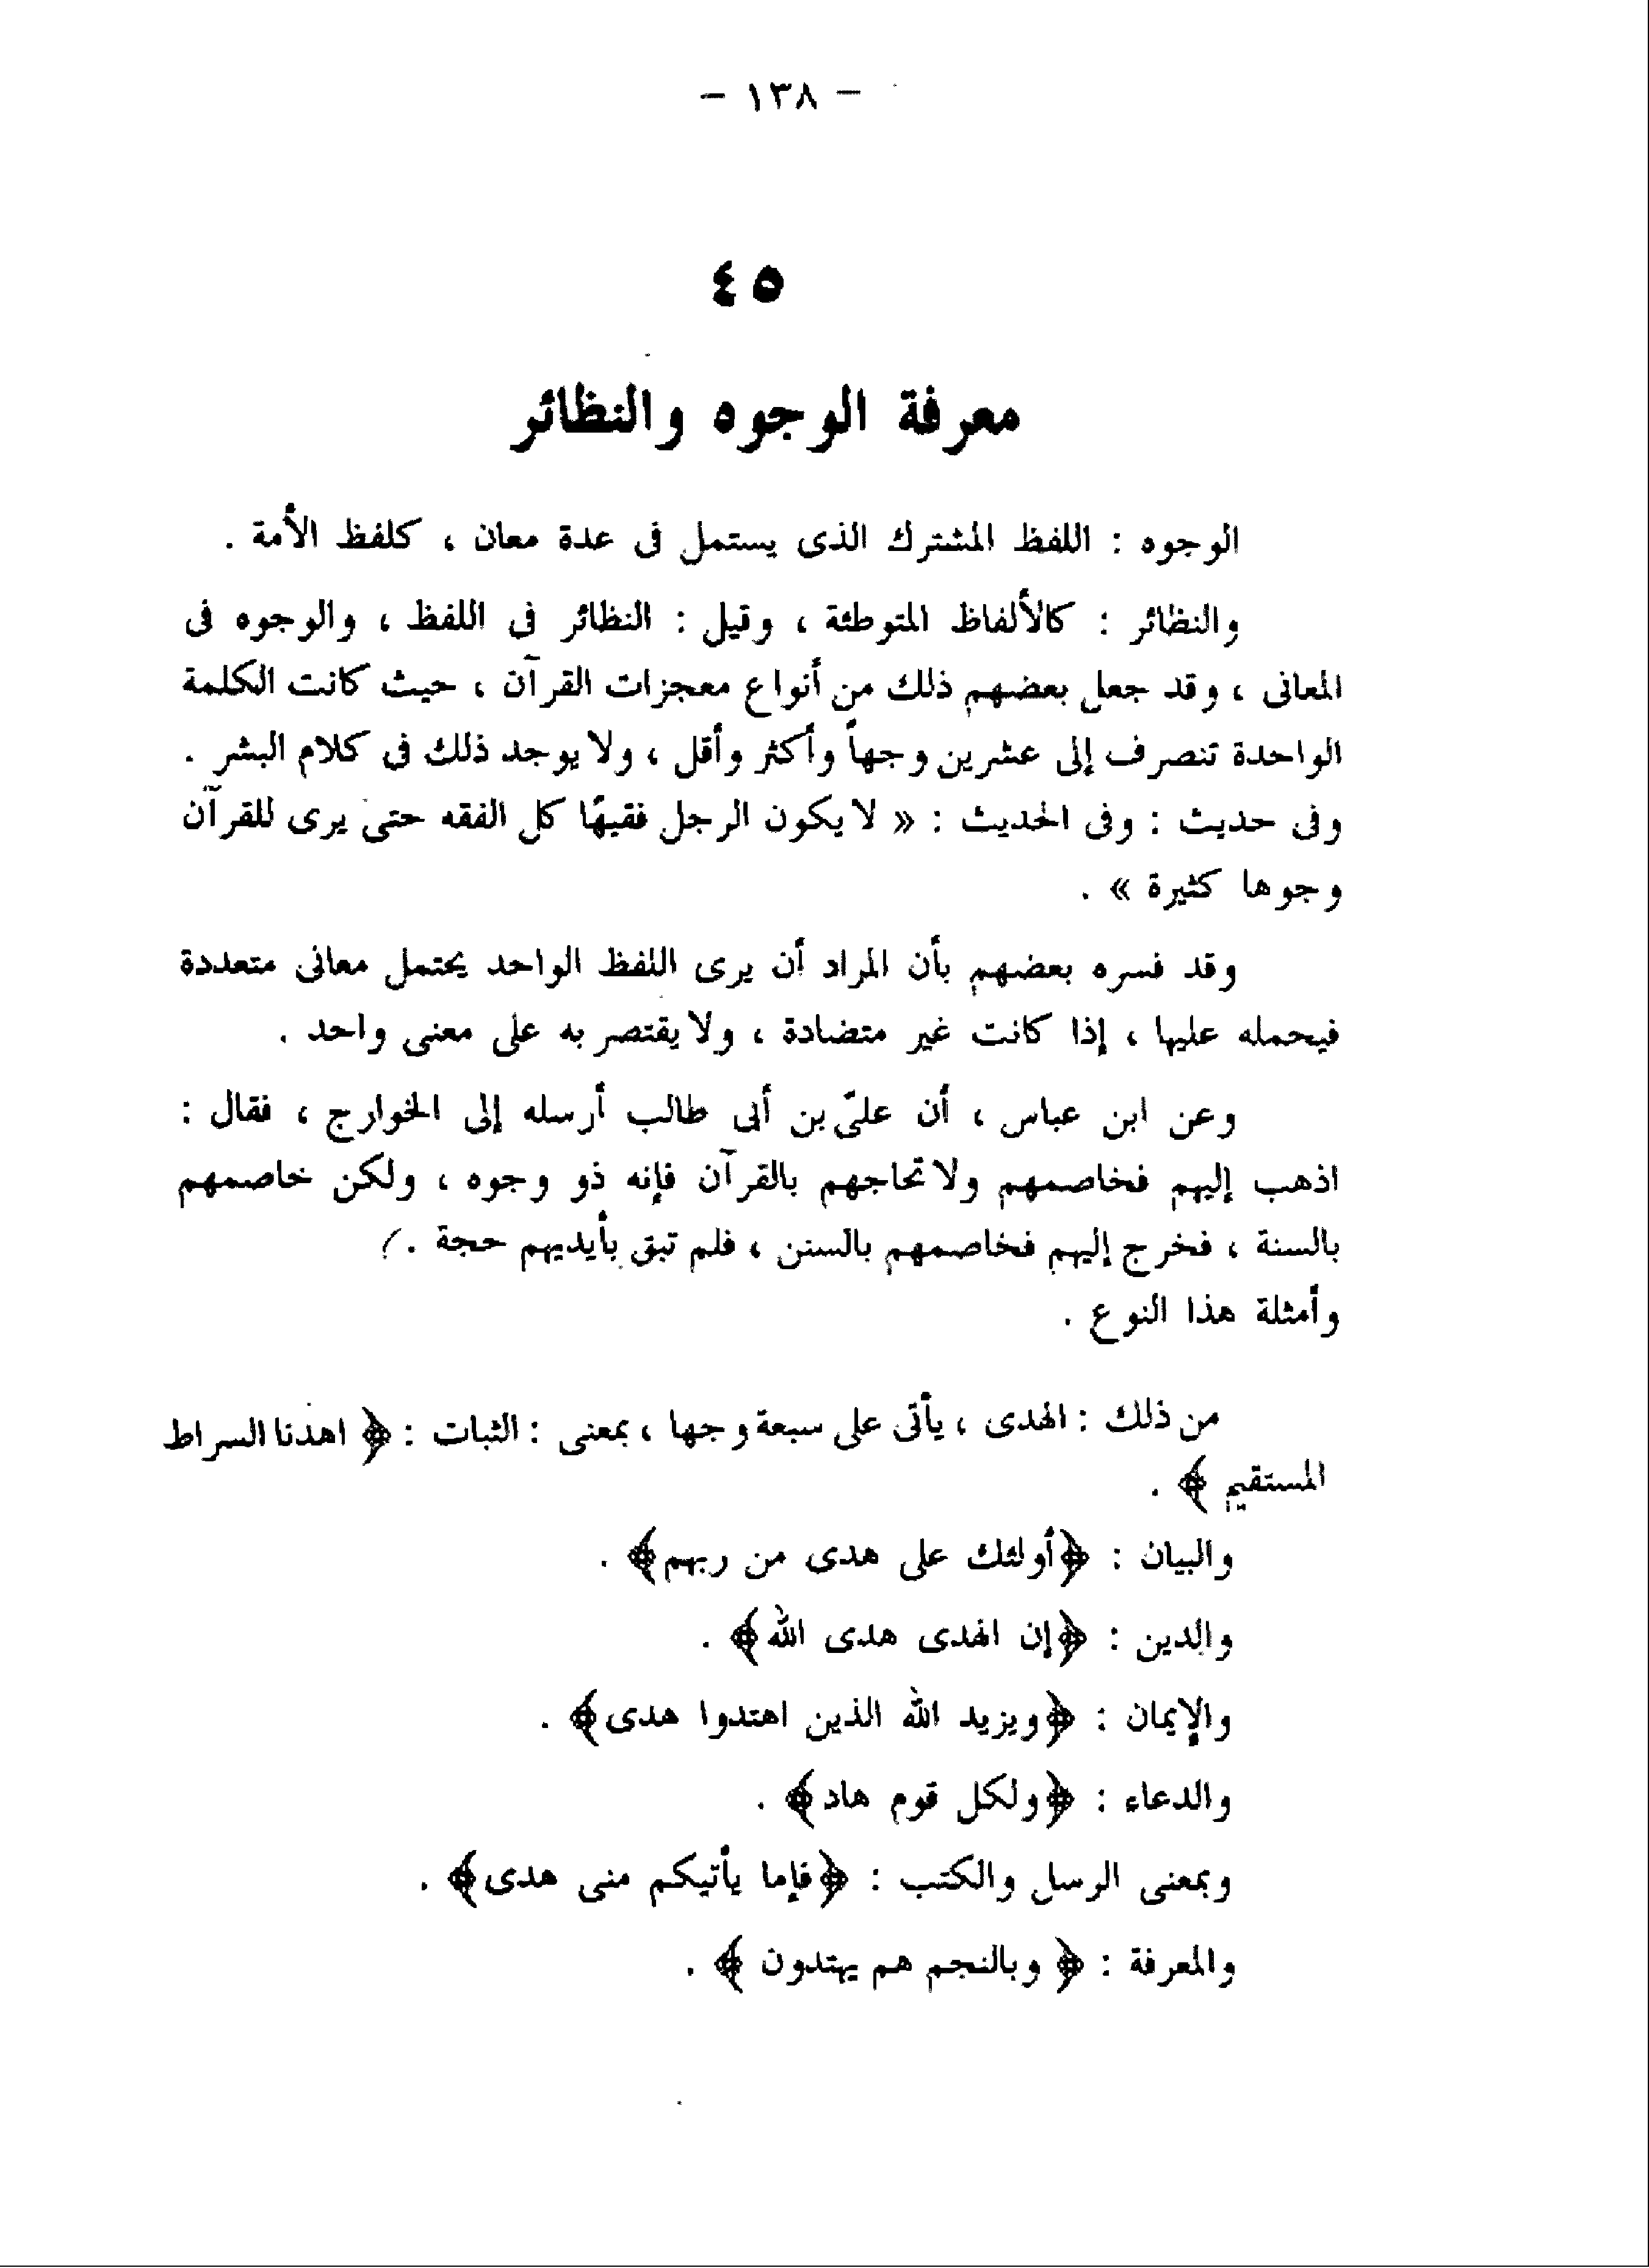 - ١٣٨ -
٤٥
معرفة الوجوه والنظائر
الوجوه : اللفظ المشترك الذى يستمل فى عدة معان ، كلفظ الأمة .
والنظائر : كالألفاظ المتوطئة ، وقيل : النظائر فى اللفظ ، والوجوه فى
المعانى ، وقد جعل بعضهم ذلك من أنواع معجزات القرآن ، حيث كانت الكلمة
الواحدة تنصرف إلى عشرين وجهاً وأكثر وأقل ، ولا يوجد ذلك فى كلام البشر .
وفى حديث : وفى الحديث : « لا يكون الرجل فقيهًا كل الفقه حتى يرى للقرآن
وجوها كثيرة » .
وقد فسره بعضهم بأن المراد أن يرى اللفظ الواحد يحتمل معانى متعددة
فيحمله عليها ، إذا كانت غير متضادة ، ولا يقتصر به على معنى واحد .
وعن ابن عباس ، أن علىّ بن أبى طالب أرسله إلى الخوارج ، فقال :
اذهب إليهم فخاصمهم ولا تحاجهم بالقرآن فإنه ذو وجوه ، ولكن خاصمهم
بالسنة ، فخرج إليهم فخاصمهم بالسنن ، فلم تبق بأيديهم حجة .
وأمثلة هذا النوع .
من ذلك : الهدى ، يأتى على سبعة وجها ، بمعنى : الثبات : ﴿ اهدنا السراط
المستقيم ﴾ .
والبيان : ﴿أولئك على هدى من ربهم﴾ .
والدين : ﴿إن الهدى هدى الله﴾ .
والإيمان : ﴿ويزيد الله الذين اهتدوا هدى﴾ .
والدعاء : ﴿ولكل قوم هاد﴾ .
وبمعنى الرسل والكتب : ﴿فإما يأتيكم منى هدى﴾ .
والمعرفة : ﴿ وبالنجم هم يهتدون ﴾ .